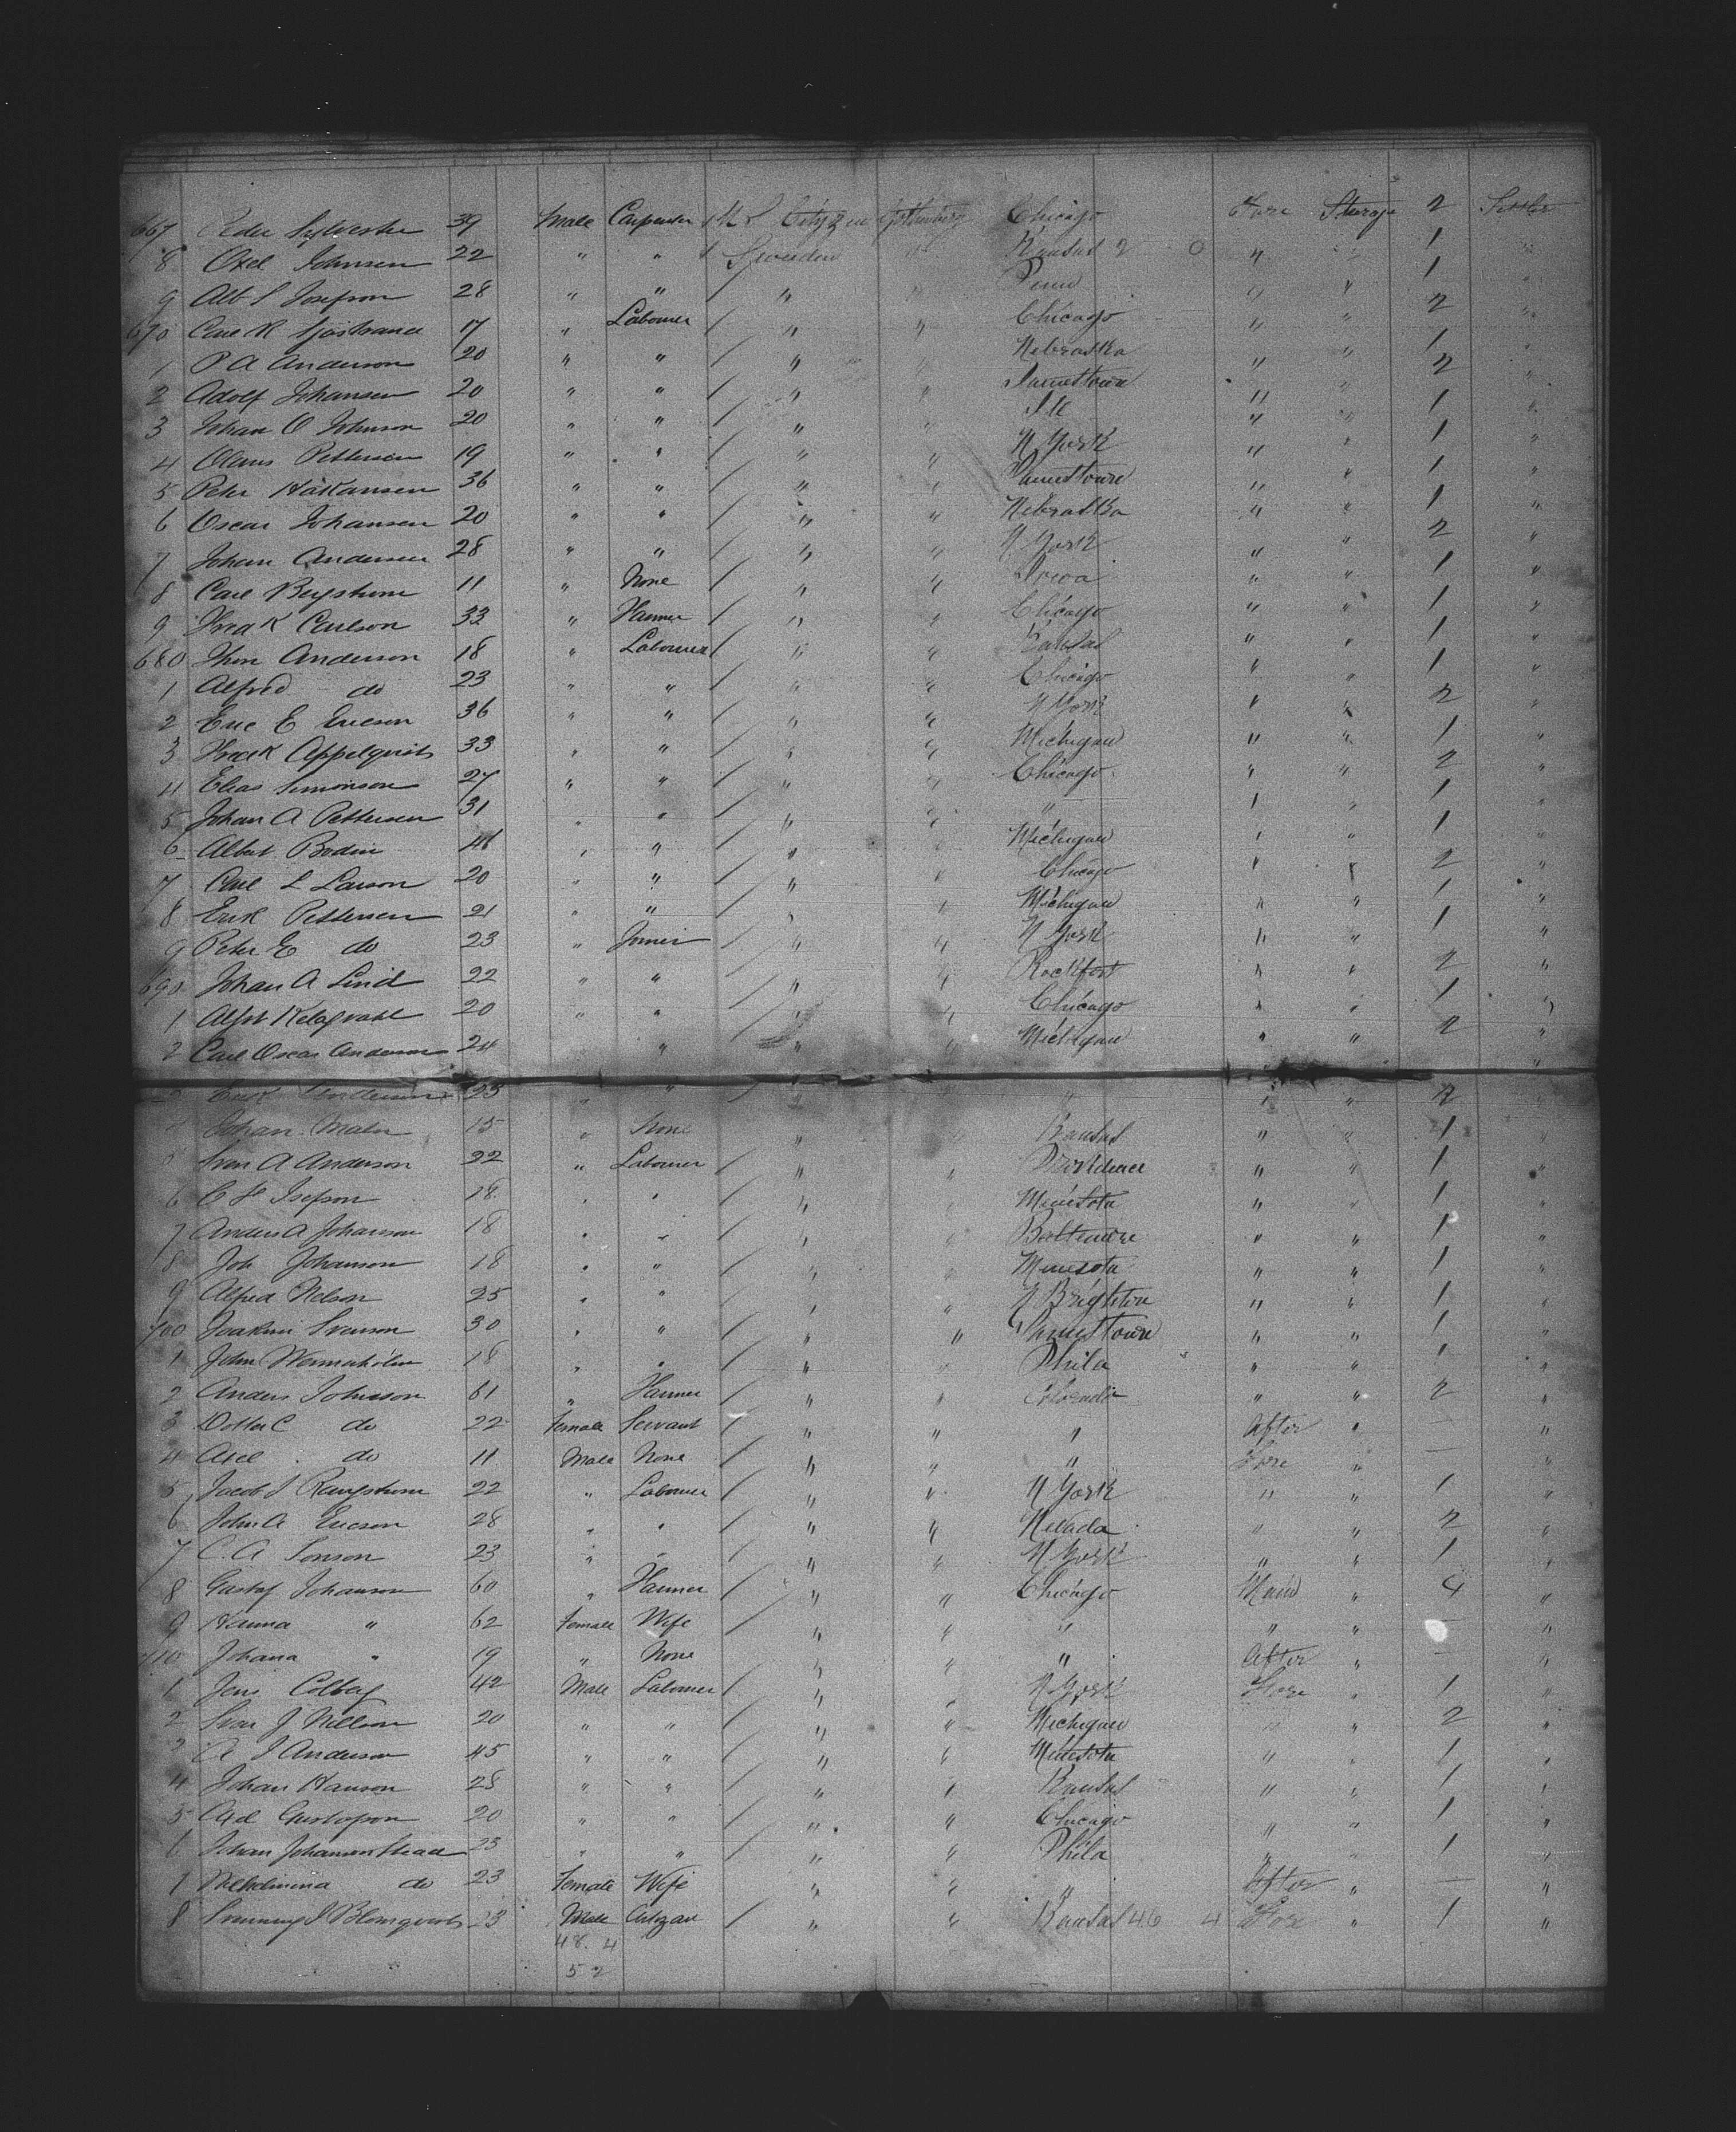 667 Peder Sylvester 39 Male Carpenter / U S Citizen Gothenburg Chicago Fore Sterage 2 Settler
8 Oxel Johnsen 22 " " / Sweden " Kansas 2 0 " " 1 "
9 Alb S Josefson 28 " " / " " Penn " " 1 "
670 Carl R Sjöstrand 17 " Labourer / " " Chicago " " 2 "
1 P A Anderson 20 " " / " " Nebraska " " 1 "
2 Adolf Johansen 20 " " / " " Jamestown " " 2 "
3 Johan O Johnson 20 " " / " " Ill " " 1 "
4 Olaus Pettersen 19 " " / " " N York " " 1 "
5 Peter Håkansen 36 " " / " " Jamestown " " 1 "
6 Oscar Johansen 20 " " / " " Nebraska " " 1 "
7 Johan Andersen 28 " " / " " N York " " 2 "
8 Carl Bergstrom 11 " None / " " Iowa " " 1 "
9 Fredk Carlson 33 " Farmer / " " Chicago " " 1 "
680 Thor Anderson 18 " Labourer / " " Kansas " " 1 "
1 Alfred do 23 " " / " " Chicago " " 1 "
2 Eric E Ericson 36 " " / " " N York " " 2 "
3 Fredk Appelquist 33 " " / " " Michigan " " 1 "
4 Elias Simonson 27 " " / " " Chicago " " 2 "
5 Johan A Pettersen 31 " " / " " " " " 1 "
6 Albert Bodin 46 " " / " " Michigan " " 1 "
7 Carl L Larson 20 " " / " " Chicago " " 2 "
8 Erik Pettersen 21 " " / " " Michigan " " 1 "
9 Peter E do 23 " Joiner / " " N York " " 1 "
690 Johan A Lind 22 " " / " " Rockford " " 2 "
1 20 " " / " " Chicago " " 1 "
2 Carl Oscar Anderson 24 " / " " Michigan " " 2 "
Erik 23 " " / " " " " 2
Johan Malm 15 " None " " Kansas " " 1 "
Sven A Anderson 22 " Labourer / " " Providence " " 1 "
6 C F Isefson 18 " " / " " Minesota " " 1 "
7 Anders A Johanson 18 " " / " " Baltimore " " 1 "
8 Joh Johanson 18 " " / " " Minesota " " 1 "
9 Alfred Nelson 25 " " / " " N Brighton " " 1 "
700 Joakim Svenson 30 " " / " " Jamestown " " 1 "
1 John 18 " " / " " Phila " " 1 "
2 Anders Johnsson 61 " Farmer / " " " " 2 "
3 C do 22 Female Servant / " " " After " "
4 Axel do 11 Male None / " " " Fore " — "
5 Jacob J Rangstrom 22 " Labourer / " " N York " " 1 "
6 John A Ericson 28 " " / " " Nevada " " 2 "
7 C. A Jonson 23 " " / " " N York " " 1 "
8 Gustaf Johanson 60 " Farmer / " " Chicago Main " 4 "
9 Hanna " 62 Female Wife / " " " " " — "
710 Johana " 19 " None " " " After " — "
1 Jens Colberg 42 Male Labourer / " " N York Fore " 1 "
2 Svar J Nillson 20 " " / " " Michigan " " 2 "
3 A J Anderson 45 " " / " " Minesota " " 1 "
4 Johan Hanson 28 " " / " " Kansas " " 1 "
5 Axel Gustafson 20 " " / " " Chicago " " 1 "
6 Johan Johanson 23 " " / " " Phila " " 1 "
7 Wilhelmina do 23 Female Wife " " " After " — "
8 J Blomquist 23 Male Artizan / " " Kansas 46 4 Fore " 1 "
48. 4
52